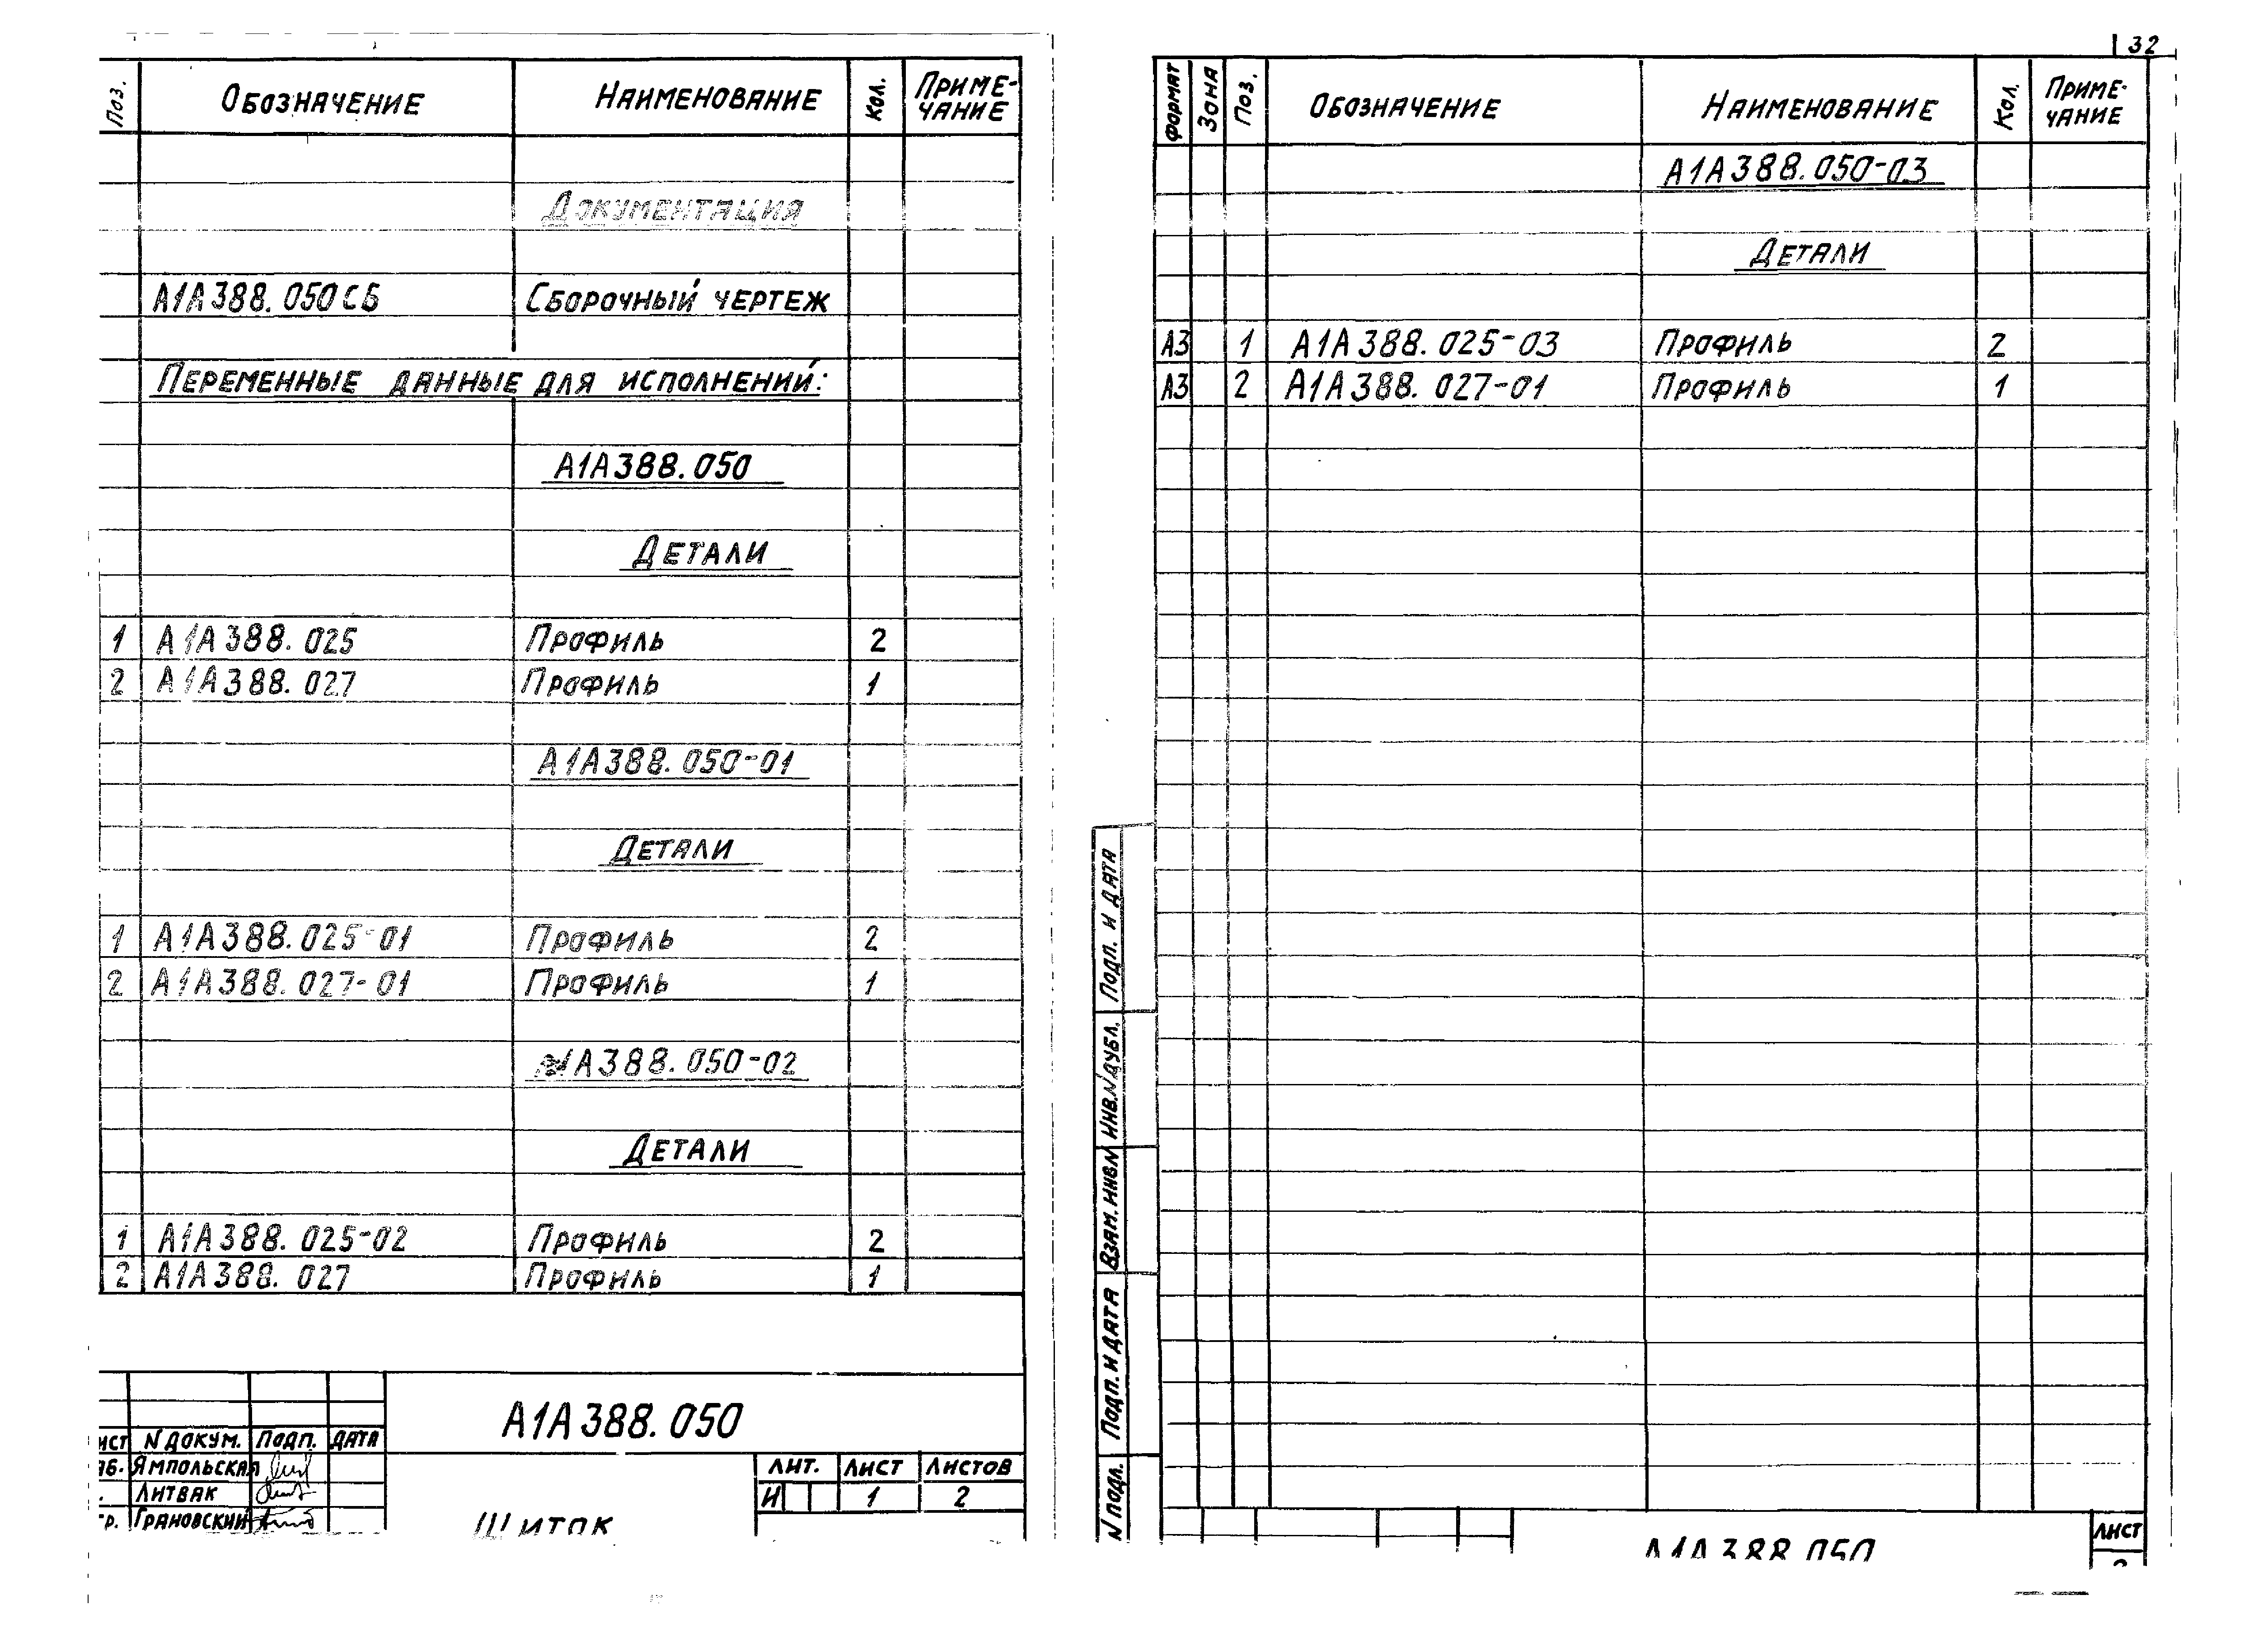 Поз. Обозначение Наименование Кол. Приме-чание
Документация
А1А388.050СБ Сборочный чертеж
Переменные данные для исполнений:
А1А388.050
Детали
1 А1А388.025 Профиль 2
2 А1А388.027 Профиль 1
А1А388.050-01
Детали
1 А1А388.025-01 Профиль 2
2 А1А388.027-01 Профиль 1
1А388.050-02
Детали
1 А1А388.025-02 Профиль 2
2 А1А388.027 Профиль 1
А1А388.050
ист N докум. Подп. Дата
Ямпольская
Литвак
гр. Грановский
Щиток
Лит. Лист Листов
И 1 2
32
Формат Зона Поз. Обозначение Наименование Кол. Приме-чание
А1А388.050-03
Детали
А3 1 А1А388.025-03 Профиль 2
А3 2 А1А388.027-01 Профиль 1
Подп. и дата
Инв.N дубл.
Взам.инв.N
Подп. и дата
N подл.
А1А388.050
Лист